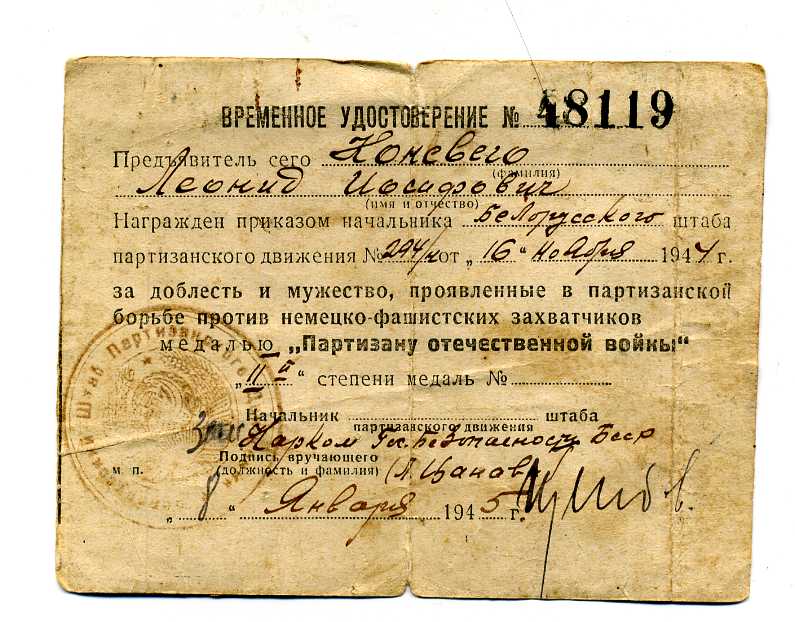 ВРЕМЕННОЕ УДОСТОВЕРЕНИЕ № 48119
Предъявитель сего Коневего
(фамилия)
Леонид Иосифович
(имя и отчество)
Награжден приказом начальника Белорусского штаба
партизанского движения № 244/н от „16" ноября 1944 г.
за доблесть и мужество, проявленные в партизанской
борьбе против немецко-фашистских захватчиков
медалью „Партизану отечественной войны"
„II й" степени медаль №
Начальник штаба
партизанского движения
Нарком Гос. Безопасности Бсср
Подпись вручающего
м. п. (должность и фамилия) (Л. Цанава)
„8" Января 1945 г.
Штаб Партизанского